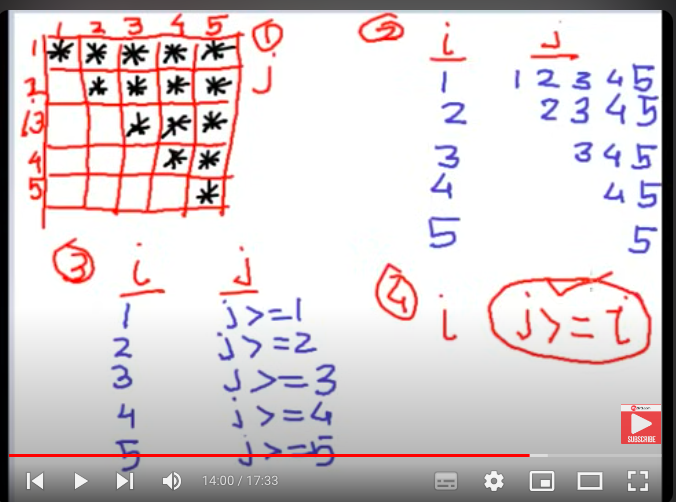 1 2 3 4 5 ①
1 * * * * * j
2 * * * *
3 * * *
4 * *
5 *
② i j
1 1 2 3 4 5
2 2 3 4 5
3 3 4 5
4 4 5
5 5
③ i j
1 j >= 1
2 j >= 2
3 j >= 3
4 j >= 4
5 j >= 5
④ i j >= i
SUBSCRIBE
14:00 / 17:33